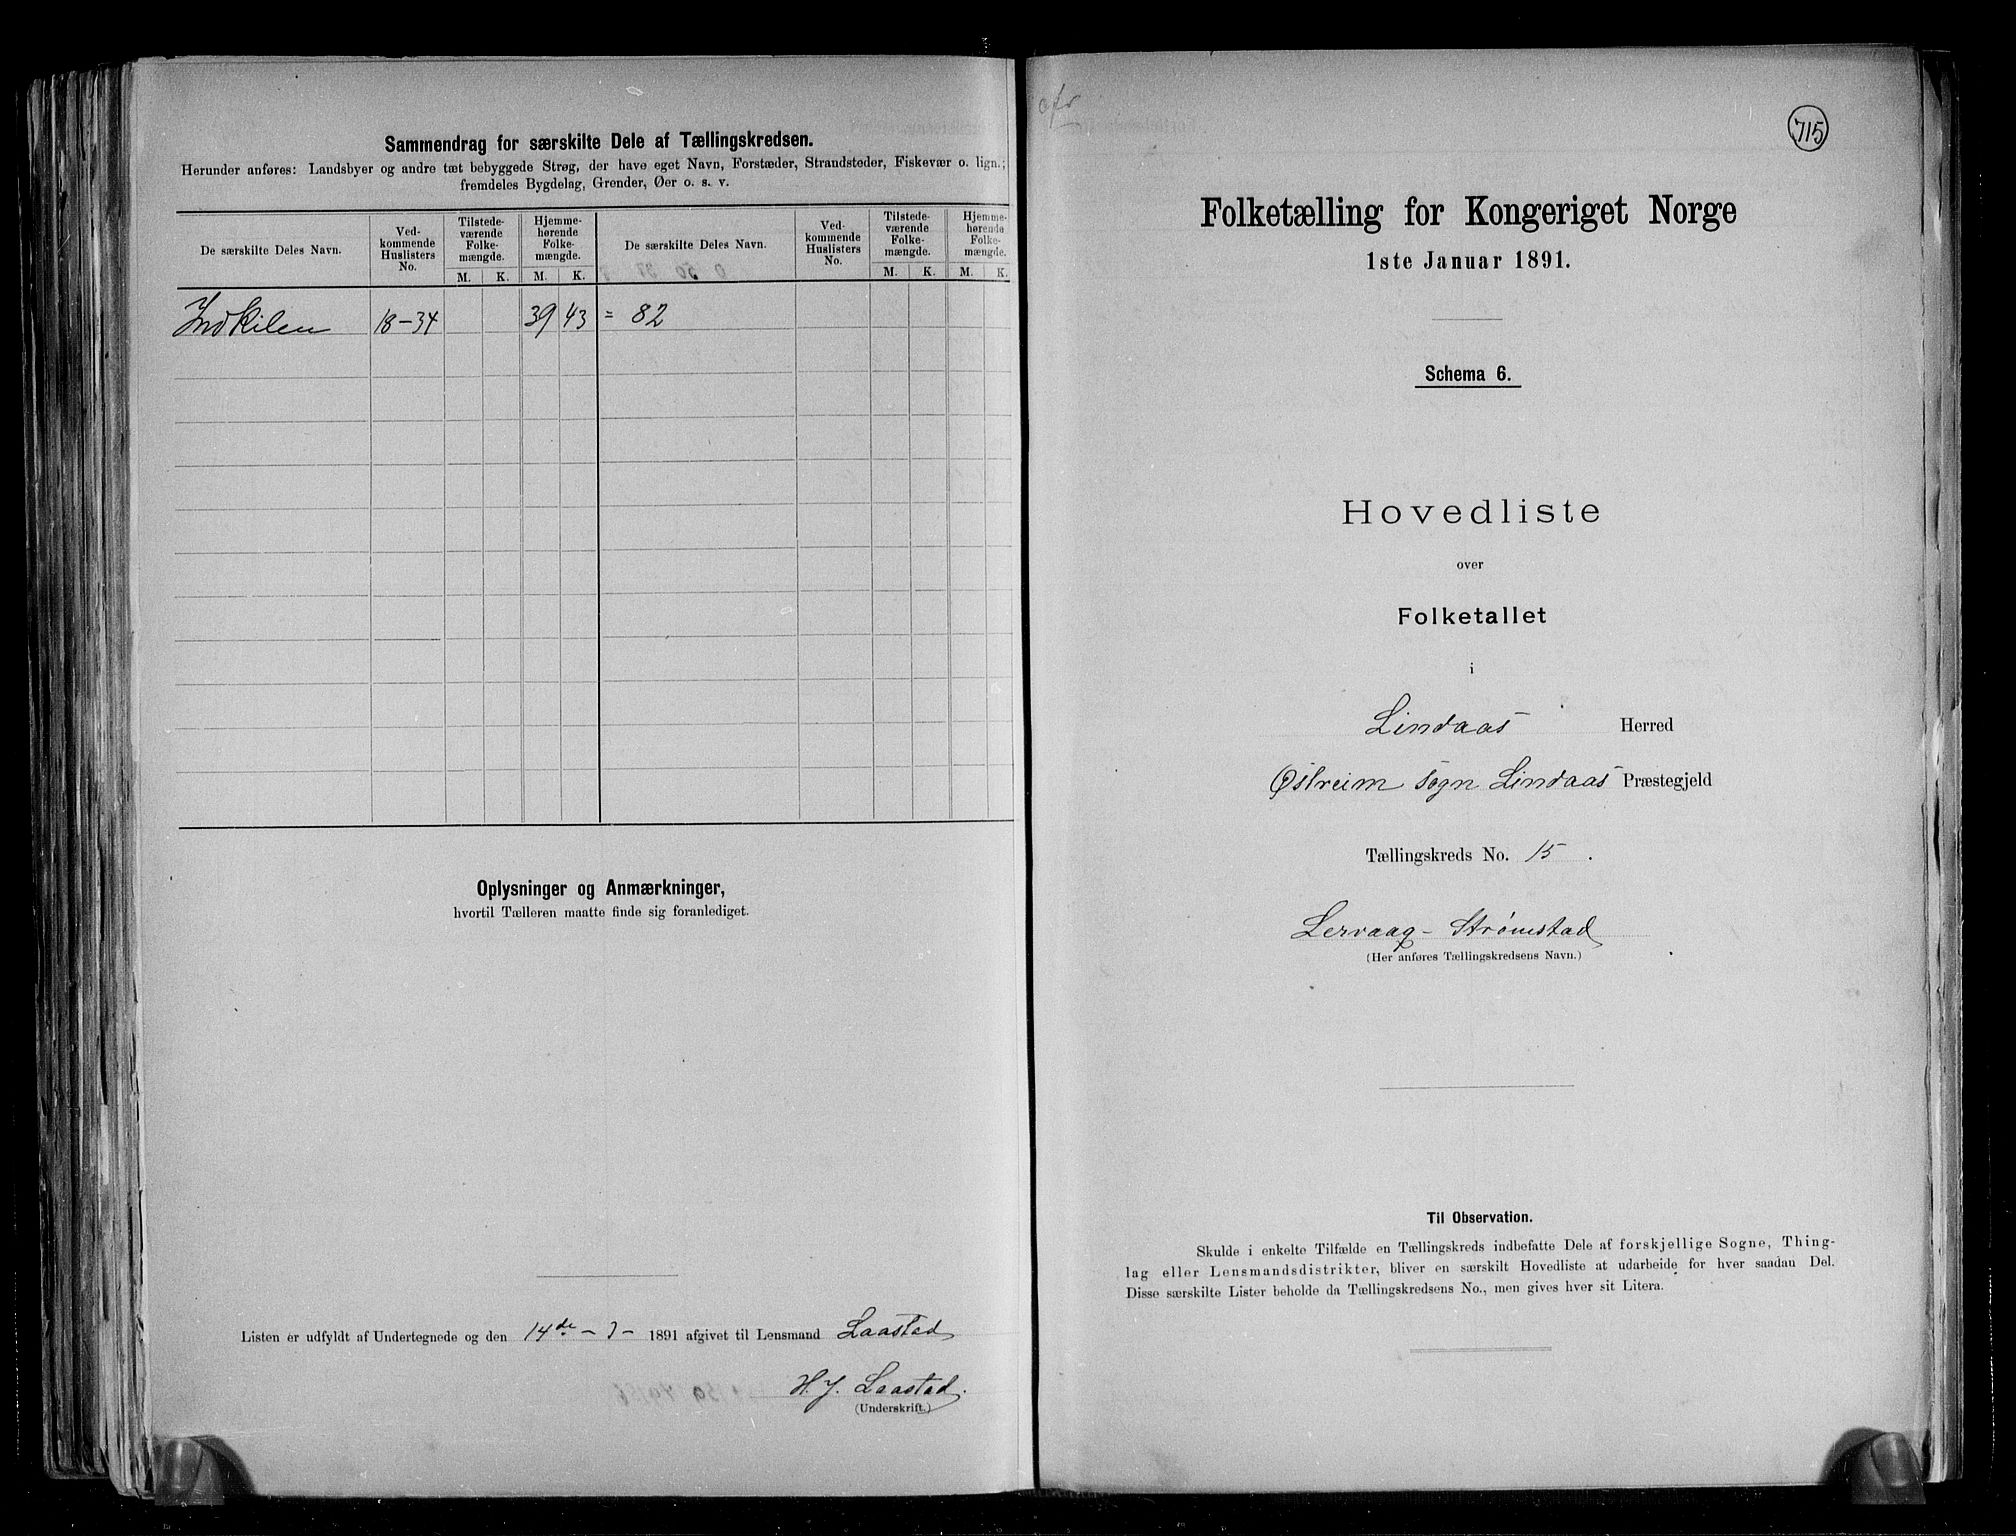 Sammendrag for særskilte Dele af Tællingskredsen.
Herunder anføres: Landsbyer og andre tæt bebyggede Strøg, der have eget Navn, Forstæder, Strandsteder, Fiskevær o. lign.;
fremdeles Bygdelag, Grender, Øer o. s. v.
De særskilte Deles Navn. Ved-kommende Huslisters No. Tilstede-værende Folke-mængde. Hjemme-hørende Folke-mængde. De særskilte Deles Navn. Ved-kommende Huslisters No. Tilstede-værende Folke-mængde. Hjemme-hørende Folke-mængde.
M. K. M. K. M. K. M. K.
Indkilen 18-34 39 43 = 82
Oplysninger og Anmærkninger,
hvortil Tælleren maatte finde sig foranlediget.
Listen er udfyldt af Undertegnede og den 14de - 1891 afgivet til Lensmand Laastad
H. J. Laastad.
(Underskrift.)
715
Folketælling for Kongeriget Norge
1ste Januar 1891.
Schema 6.
Hovedliste
over
Folketallet
i
Lindaas Herred
Østreim Sogn Lindaas Præstegjeld
Tællingskreds No. 15.
Lervaag - Strømstad
(Her anføres Tællingskredsens Navn.)
Til Observation.
Skulde i enkelte Tilfælde en Tællingskreds indbefatte Dele af forskjellige Sogne, Thing-
lag eller Lensmandsdistrikter, bliver en særskilt Hovedliste at udarbeide for hver saadan Del.
Disse særskilte Lister beholde da Tællingskredsens No., men gives hver sit Litera.